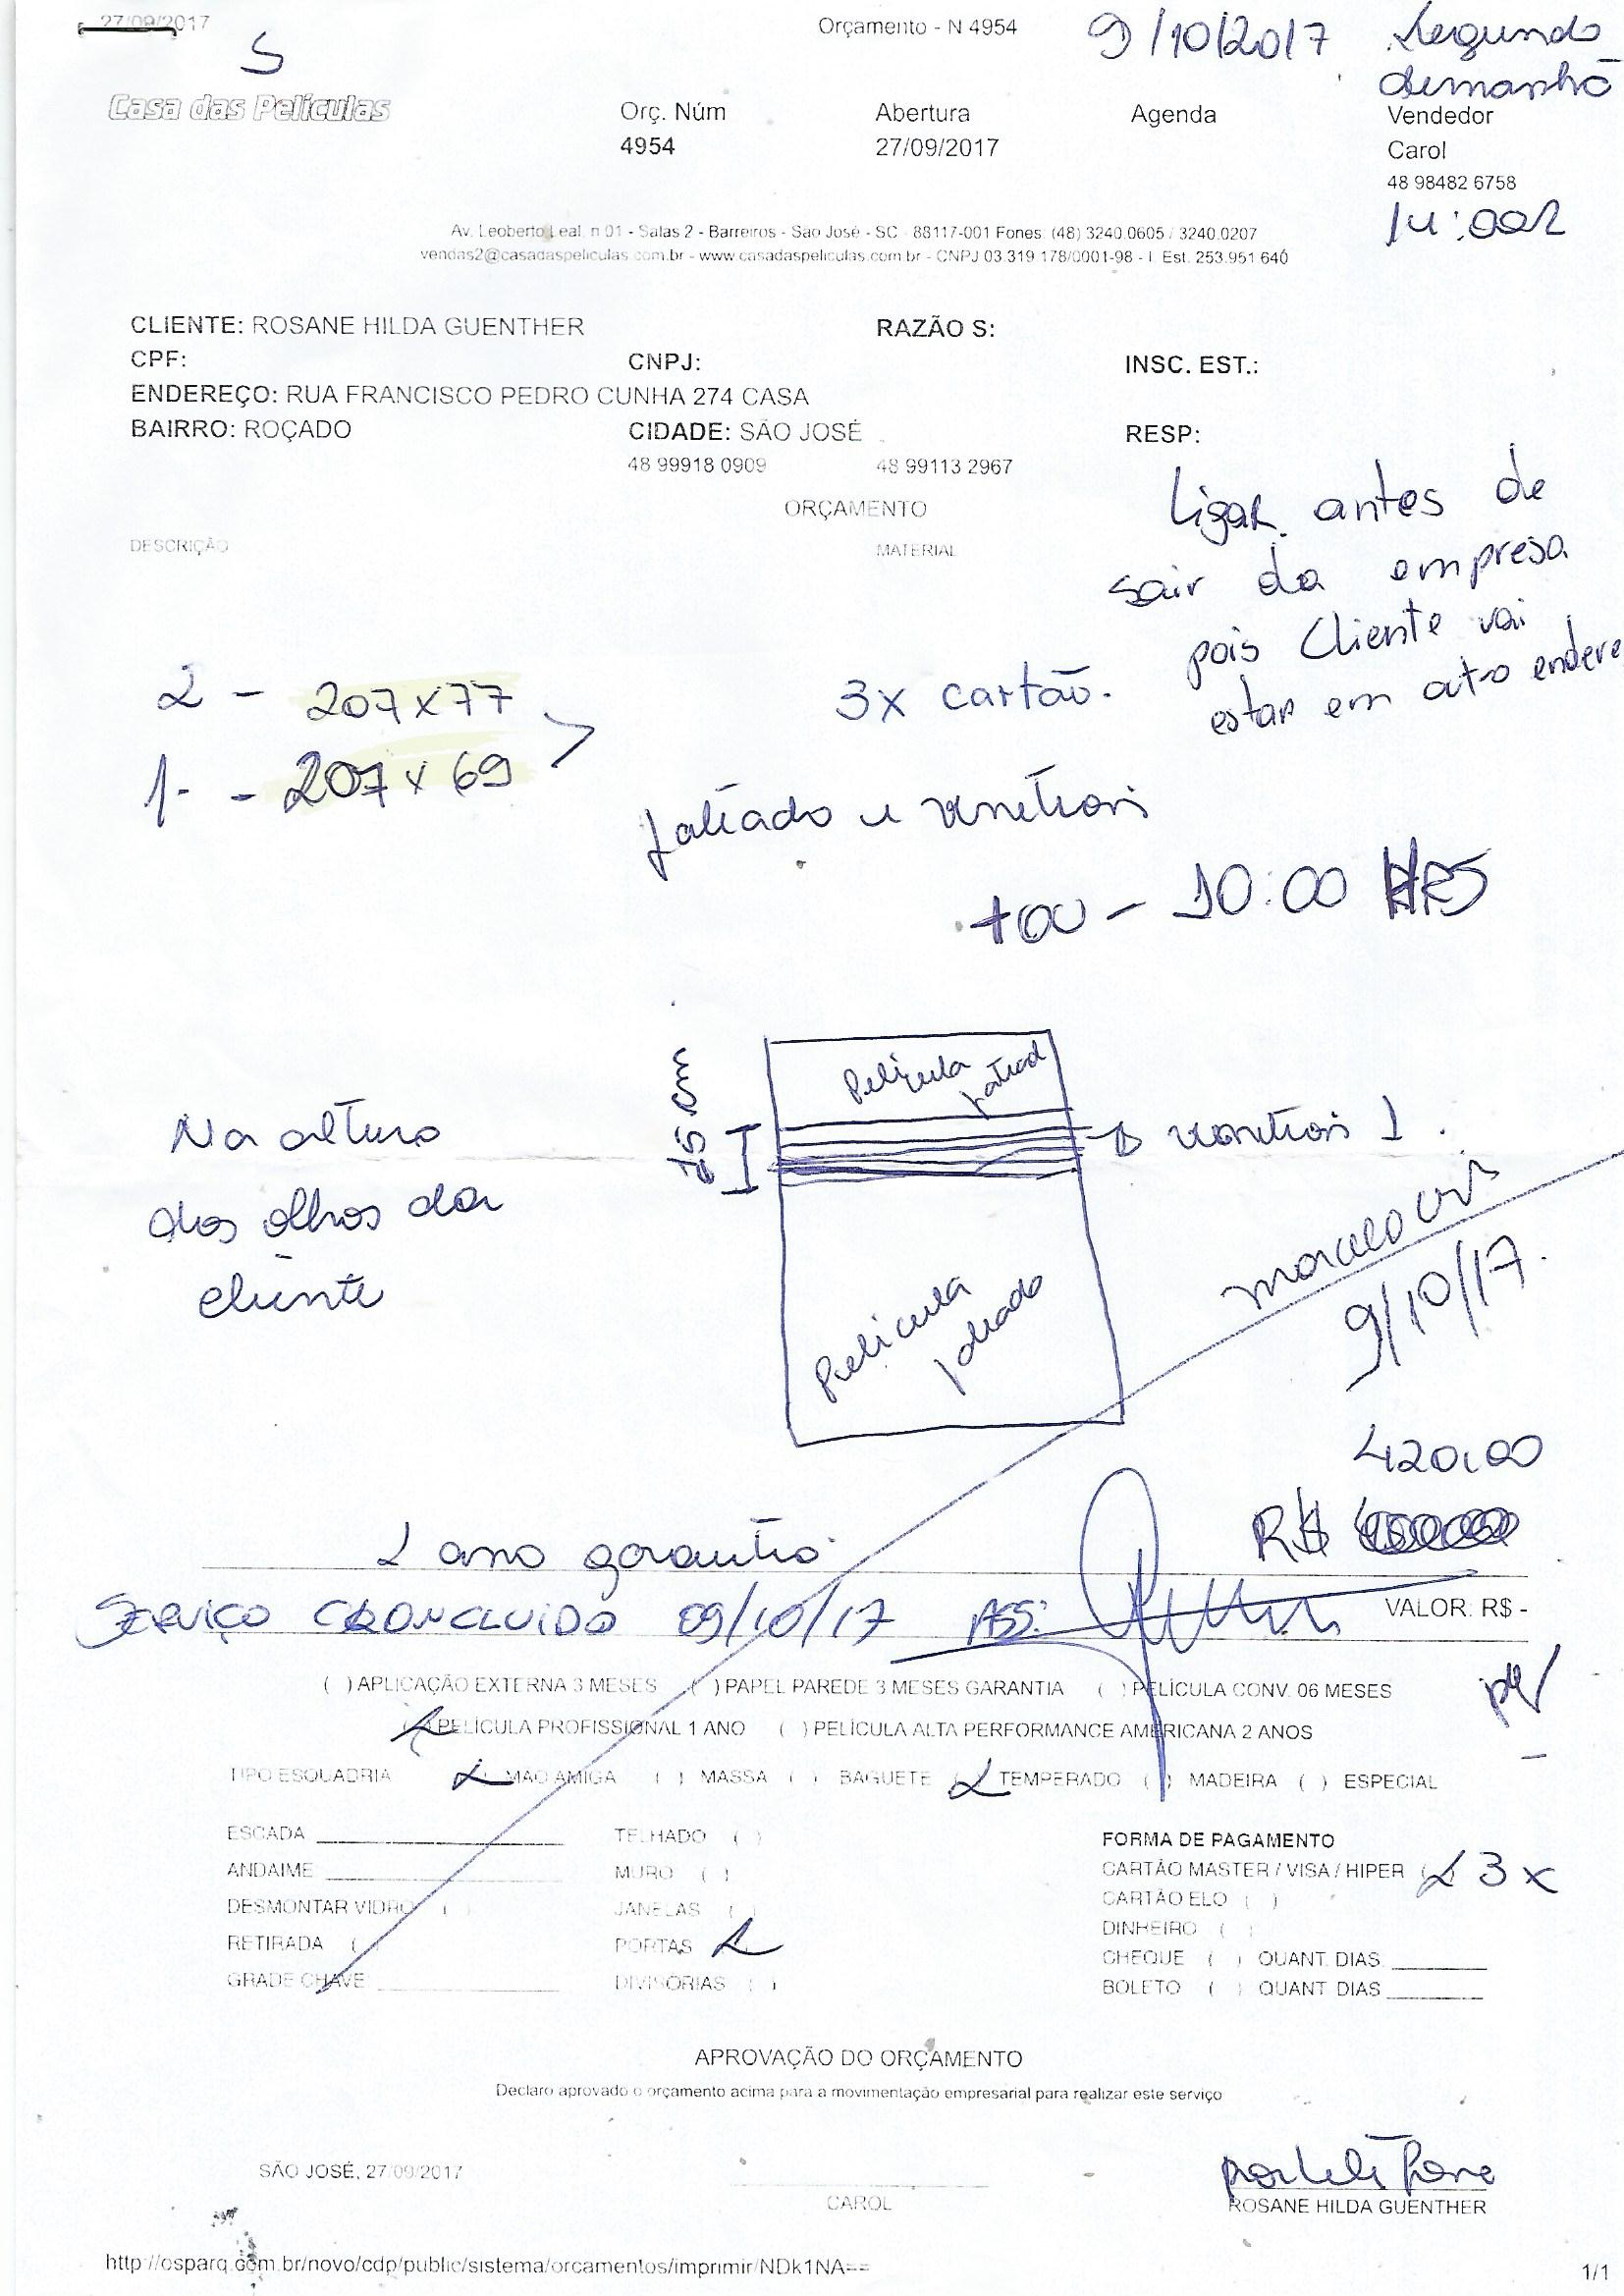 27/09/2017
Orçamento - N 4954
9/10/2017 Segundo
demanhã
S
Casa das Películas
Orç. Núm
Abertura
Agenda
Vendedor
4954
27/09/2017
Carol
48 98482 6758
14:00
Av. Leoberto Leal, n 01 - Salas 2 - Barreiros - São José - SC - 88117-001 Fones: (48) 3240.0605 / 3240.0207
vendas2@casadaspeliculas.com.br - www.casadaspeliculas.com.br - CNPJ 03.319.178/0001-98 - I. Est. 253.951.640
CLIENTE: ROSANE HILDA GUENTHER
RAZÃO S:
CPF:
CNPJ:
INSC. EST.:
ENDEREÇO: RUA FRANCISCO PEDRO CUNHA 274 CASA
BAIRRO: ROÇADO
CIDADE: SÃO JOSÉ
RESP:
48 99918 0909
48 99113 2967
ORÇAMENTO
DESCRIÇÃO
MATERIAL
Ligar antes de
sair da empresa
pois Cliente vai
estar em outro endere
2 - 207x77
1 - 207x69
3x cartão.
jateado e
10:00 HRS
Película
25 cm
Na altura
dos olhos da
cliente
Película
jateado
9/10/17.
420,00
R$
1 ano garantia
SERVIÇO CONCLUIDO 09/10/17 ASS:
VALOR: R$ -
( ) APLICAÇÃO EXTERNA 3 MESES ( ) PAPEL PAREDE 3 MESES GARANTIA ( ) PELÍCULA CONV. 06 MESES
( ) PELÍCULA PROFISSIONAL 1 ANO ( ) PELÍCULA ALTA PERFORMANCE AMERICANA 2 ANOS
TIPO ESQUADRIA ( ) MAO AMIGA ( ) MASSA ( ) BAGUETE ( ) TEMPERADO ( ) MADEIRA ( ) ESPECIAL
ESCADA
TELHADO ( )
FORMA DE PAGAMENTO
ANDAIME
MURO ( )
CARTÃO MASTER / VISA / HIPER ( ) 3x
DESMONTAR VIDRO ( )
JANELAS ( )
CARTÃO ELO ( )
RETIRADA ( )
PORTAS
DINHEIRO ( )
GRADE CHAVE
DIVISÓRIAS ( )
CHEQUE ( ) QUANT. DIAS
BOLETO ( ) QUANT DIAS
APROVAÇÃO DO ORÇAMENTO
Declaro aprovado o orçamento acima para a movimentação empresarial para realizar este serviço
SÃO JOSÉ, 27/09/2017
por telefone
CAROL
ROSANE HILDA GUENTHER
http://osparq.com.br/novo/cdp/public/sistema/orcamentos/imprimir/NDk1NA==
1/1